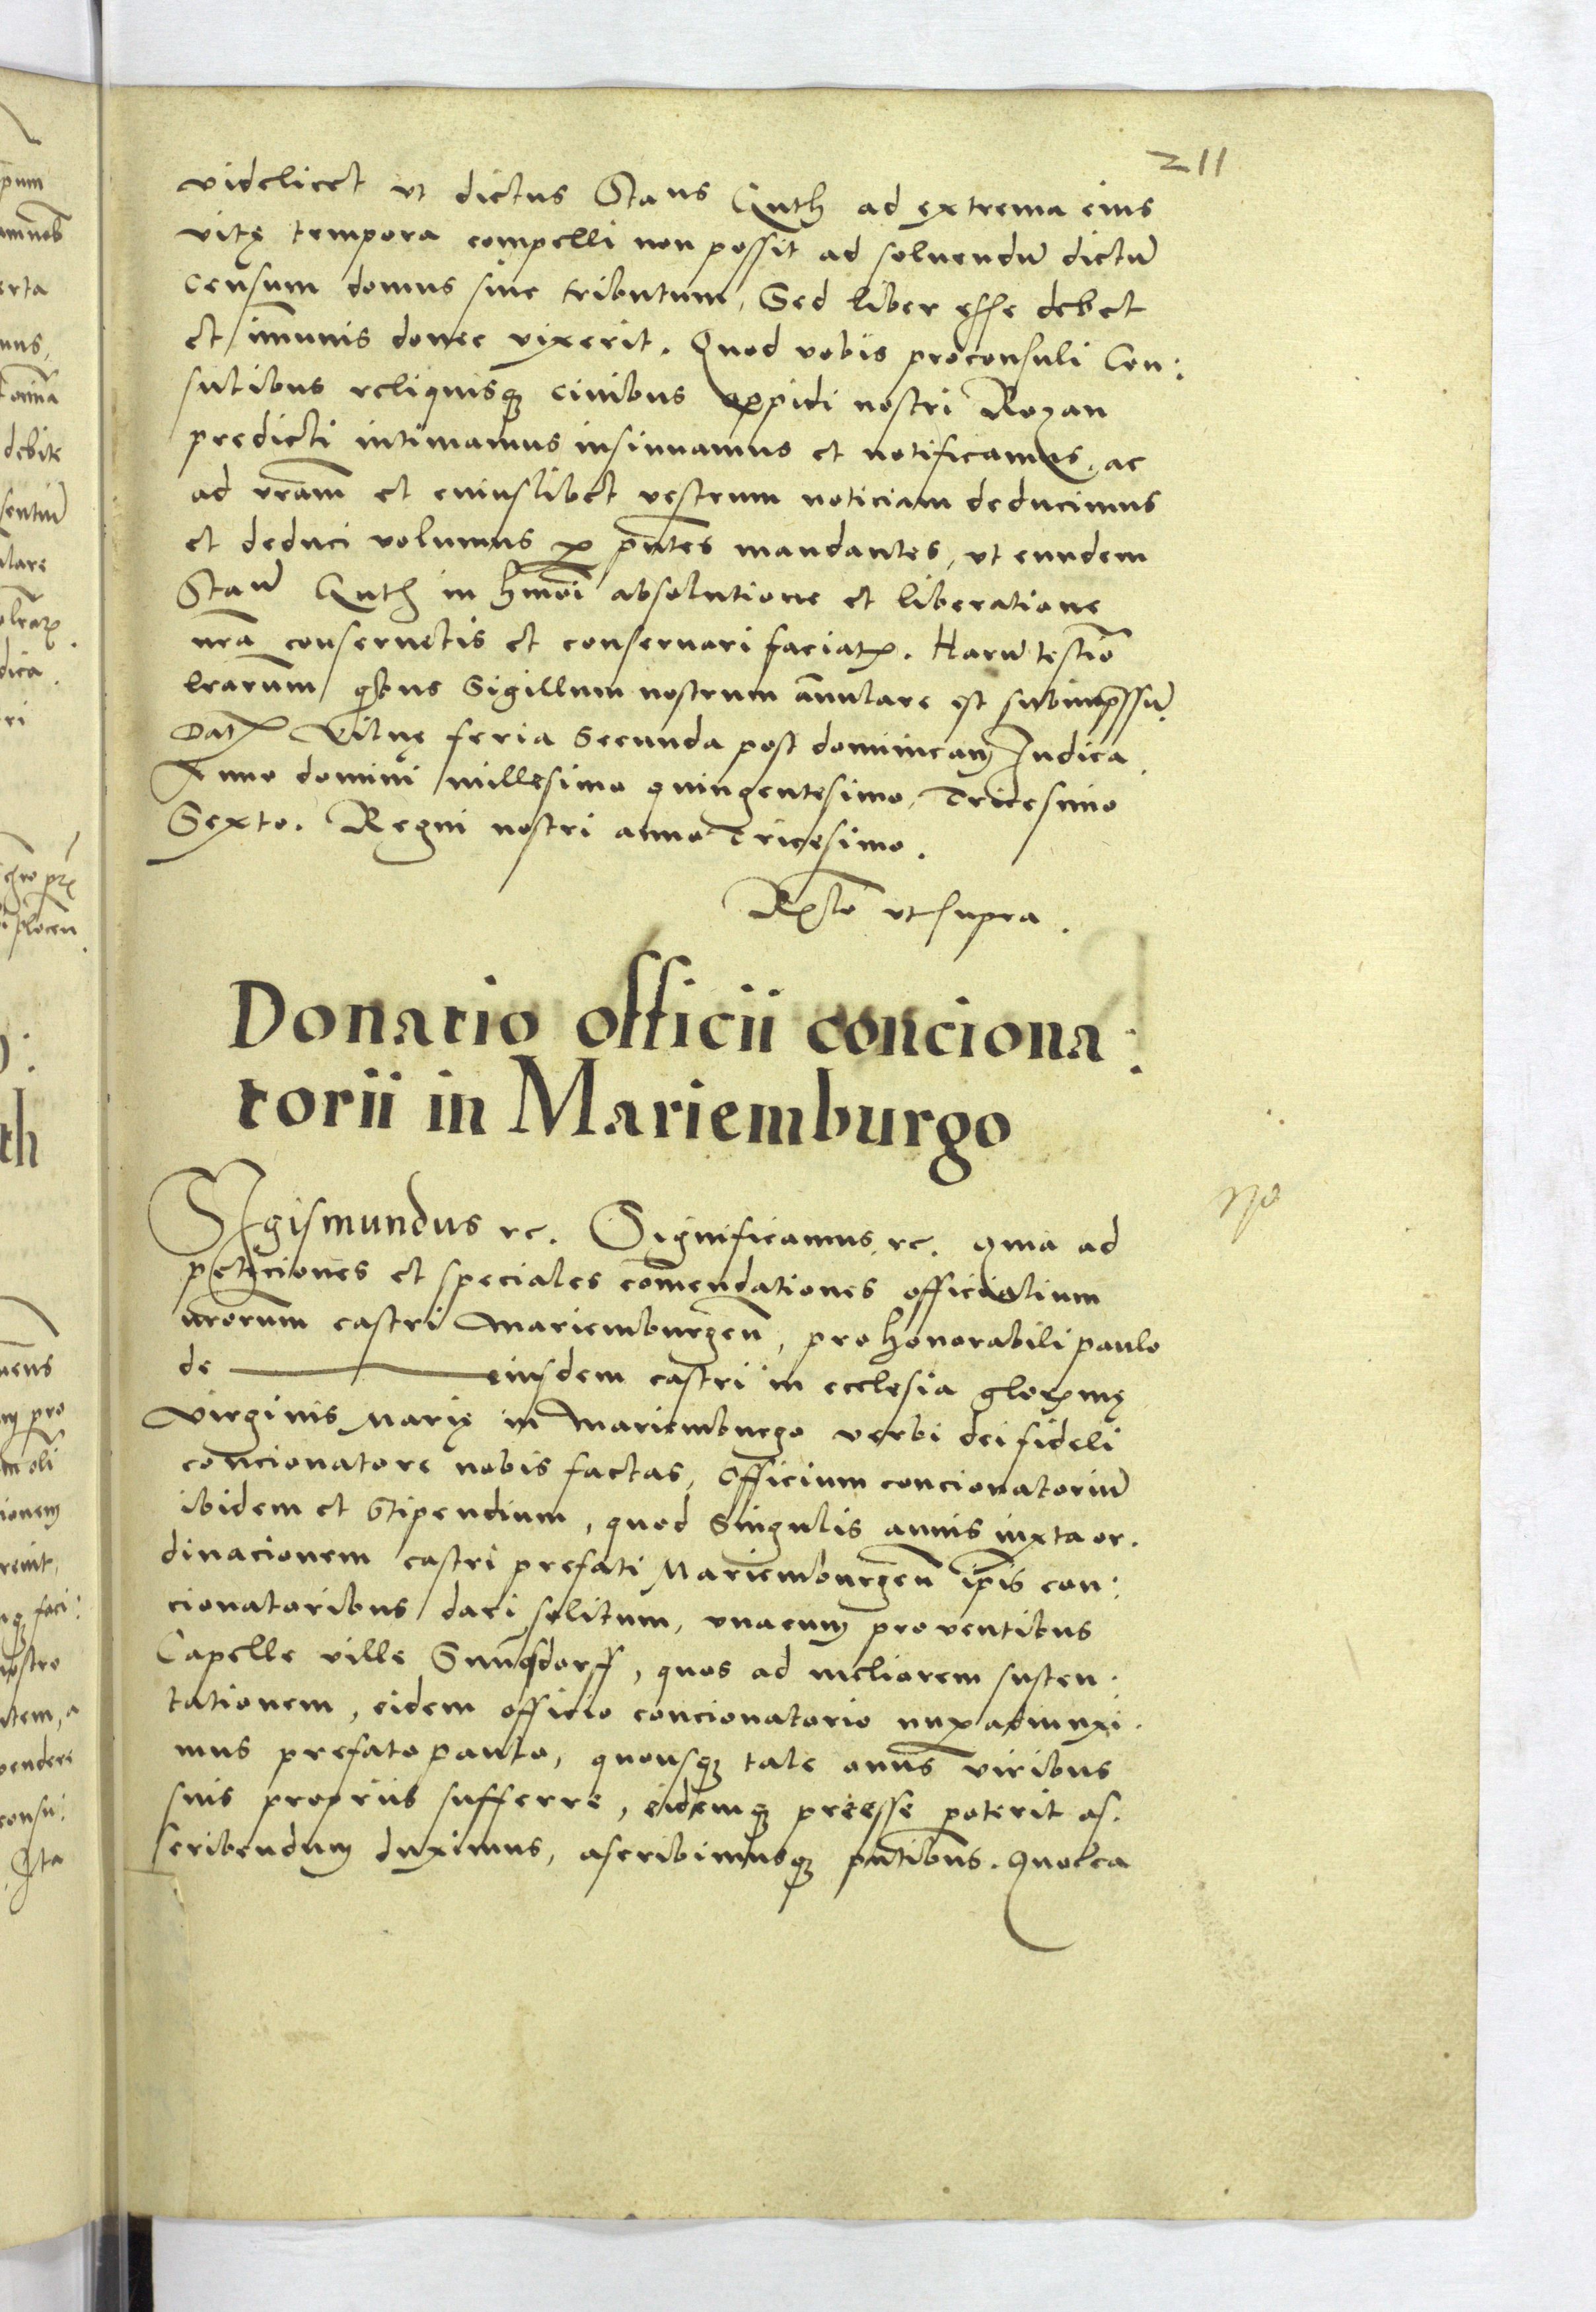 211
videlicet vt dictus Staus Quth ad extrema eius
vitę tempora compelli non possit ad soluendū dictū
censum domus siue tributum, Sed liber esse debet
et im̄unis donec vixerit. Quod vobis proconsuli Con:
sulibus reliquisq3 ciuibus oppidi nostri Rozan
predicti intimamus insinuamus et notificamus, ac
ad vrām et cuiuslibet vestrum noticiam deducimus
et deduci volumus p pn̄tes mandantes, vt eundem
Staū Quth in hmōi absolutione et liberatione
nrā conseruetis et conseruari faciatis. Harū testiō
lrarūm qbus Sigillum nostrum an̄ulare est subimpressū.
Dat Vilnę feria Secunda post dominicam Iudica
Anno domini millesimo quingentesimo, Tricesimo
Sexto. Regni nostri anno Tricesimo.
Rlō vt supra.
Donatio officii conciona:
torii in Mariemburgo
Sigismundus rc. Significamus, rc. Quia ad
peticiones et speciales com̄endationes officialium
nrorūm castri Mariemburgeñ, pro honorabili paulo
de eiusdem castri in ecclesia glorimę
virginis Marię in Mariemburgo verbi dei fideli
concionatore nobis factas, Officium concionatoriū
ibidem et Stipendium, quod Singulis annis iuxta or.
dinacionem castri prefati Mariemburgeñ ipīs con:
cionatoribus dari solitum, vnacum prouentibus
Capelle ville dorff, quos ad meliorem susten.
tationem, eidem officio concionatorio nup adiunxi.
mus prefato paulo, quousq3 tale onus viribus
suis proprÿs sufferre, eidemq3 preesse poterit as.
scribendum duximus, ascribimusq3 pn̄tibus. Quocca